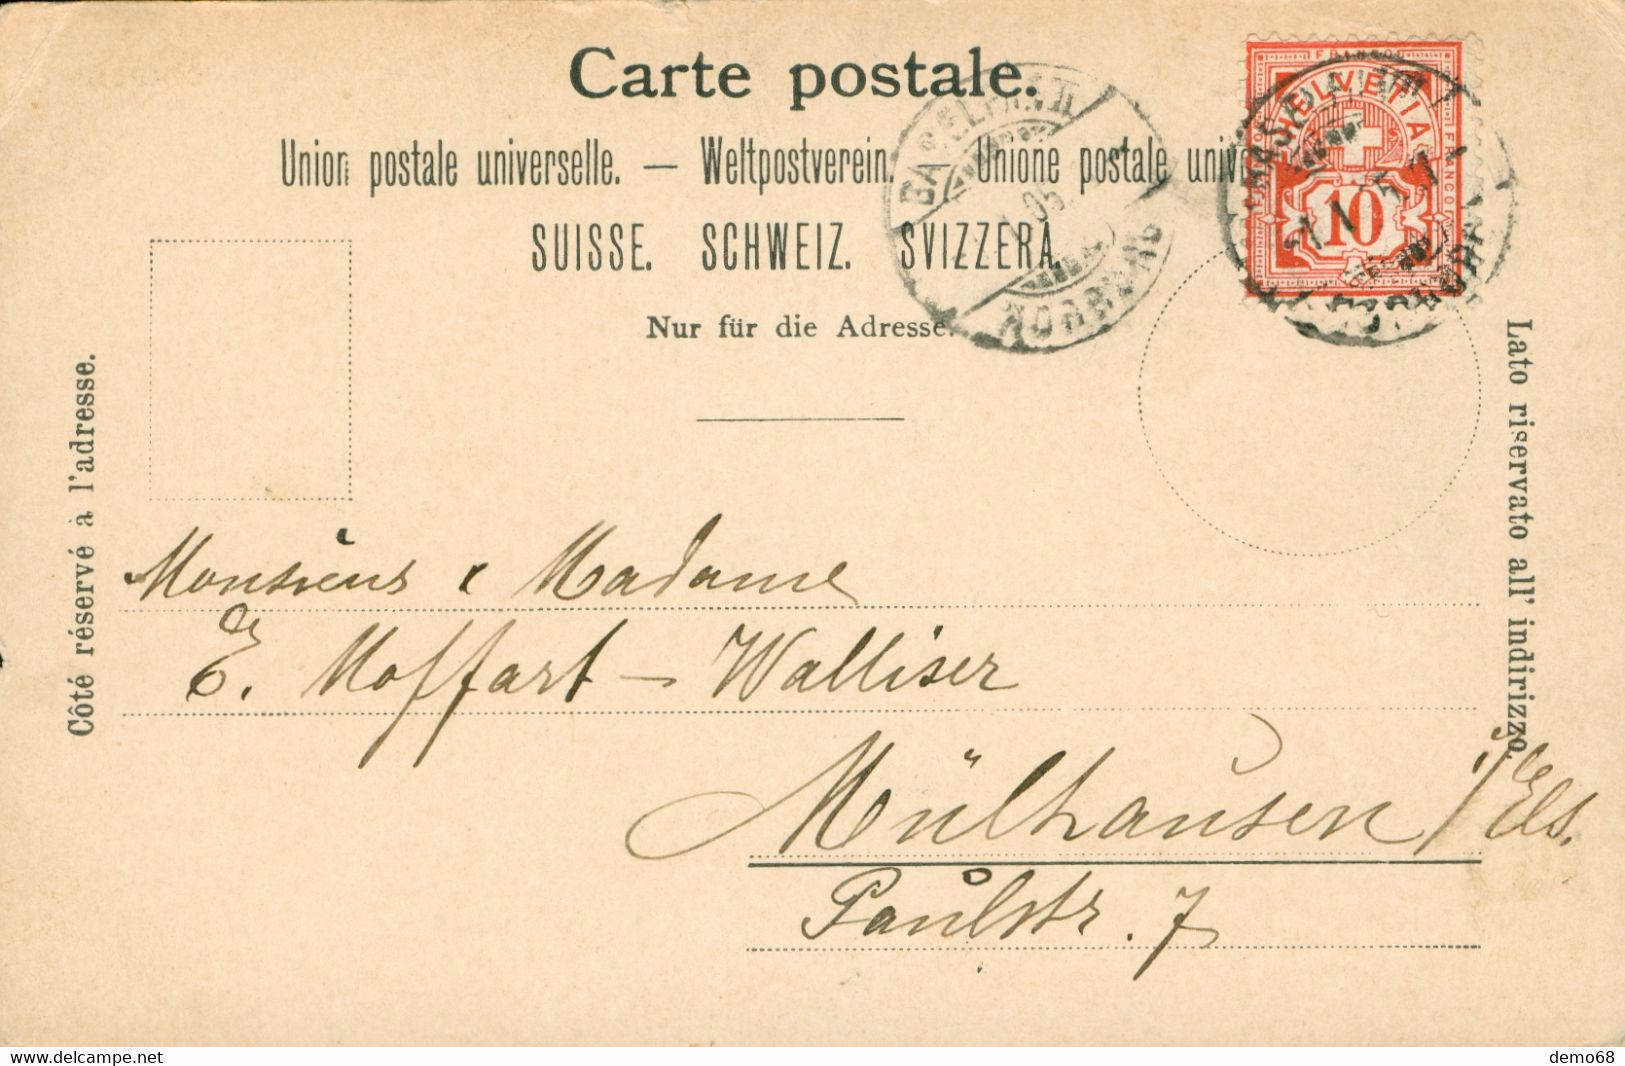 Carte postale.
Union postale universelle. — Weltpostverein. — Unione postale unive
SUISSE. SCHWEIZ. SVIZZERA.
Nur für die Adresse.
HELVETIA
FRANCO
10
BASEL
05
Côté réservé à l'adresse.
Lato riservato all' indirizzo.
Monsieur & Madame
E. Moffart – Walliser
Mülhausen i/Els.
Paulstr. 7
delcampe.net
demo68